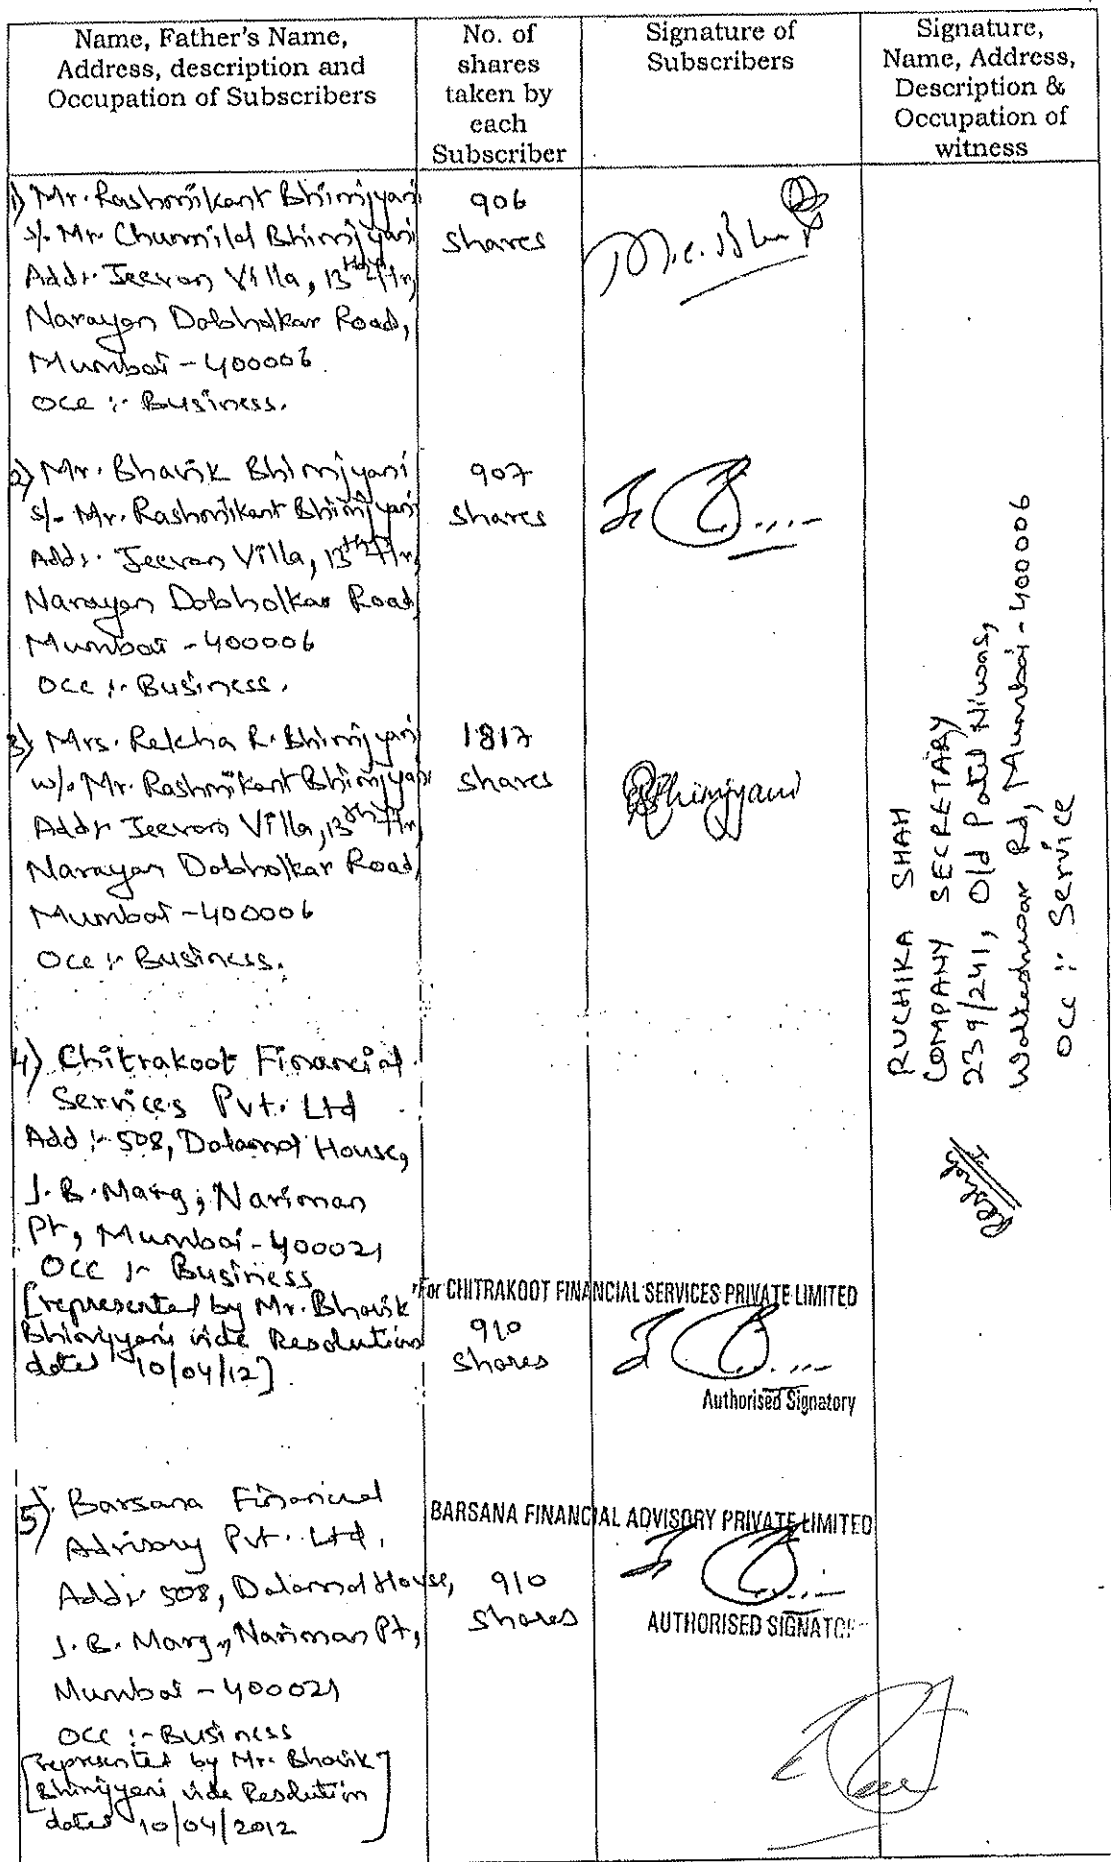 Name, Father's Name,
Address, description and
Occupation of Subscribers
No. of
shares
taken by
each
Subscriber
Signature of
Subscribers
Signature,
Name, Address,
Description &
Occupation of
witness
1) Mr. Rashmikant Bhimjyani
s/. Mr Chunnilal Bhimjyani
Addr. Jeevan Villa, 13th Flr,
Narayan Dabholkar Road,
Mumbai - 400006.
Occ :- Business.
906
shares
2) Mr. Bhavik Bhimjyani
s/. Mr. Rashmikant Bhimjyani
Addr. Jeevan Villa, 13th Flr,
Narayan Dabholkar Road,
Mumbai - 400006
Occ :- Business.
907
shares
3) Mrs. Rekha R. Bhimjyani
w/. Mr. Rashmikant Bhimjyani
Addr Jeevan Villa, 13th Flr,
Narayan Dabholkar Road,
Mumbai - 400006
Occ :- Business.
1817
shares
Bhimjyani
4) Chitrakoot Financial
Services Pvt. Ltd
Add :- 508, Dalamal House,
J. B. Marg, Nariman
Pt, Mumbai - 400021
Occ :- Business
[represented by Mr. Bhavik
Bhimjyani vide Resolution
dated 10/04/12]
910
shares
For CHITRAKOOT FINANCIAL SERVICES PRIVATE LIMITED
Authorised Signatory
5) Barsana Financial
Advisory Pvt. Ltd.
Addr 508, Dalamal House,
J. B. Marg, Nariman Pt,
Mumbai - 400021
Occ :- Business
[represented by Mr. Bhavik
Bhimjyani vide Resolution
dated 10/04/2012]
910
shares
BARSANA FINANCIAL ADVISORY PRIVATE LIMITED
AUTHORISED SIGNATO
RUCHIKA SHAH
COMPANY SECRETARY
239/241, Old Patil Niwas,
Walkeshwar Rd, Mumbai - 400006
Occ :- Service